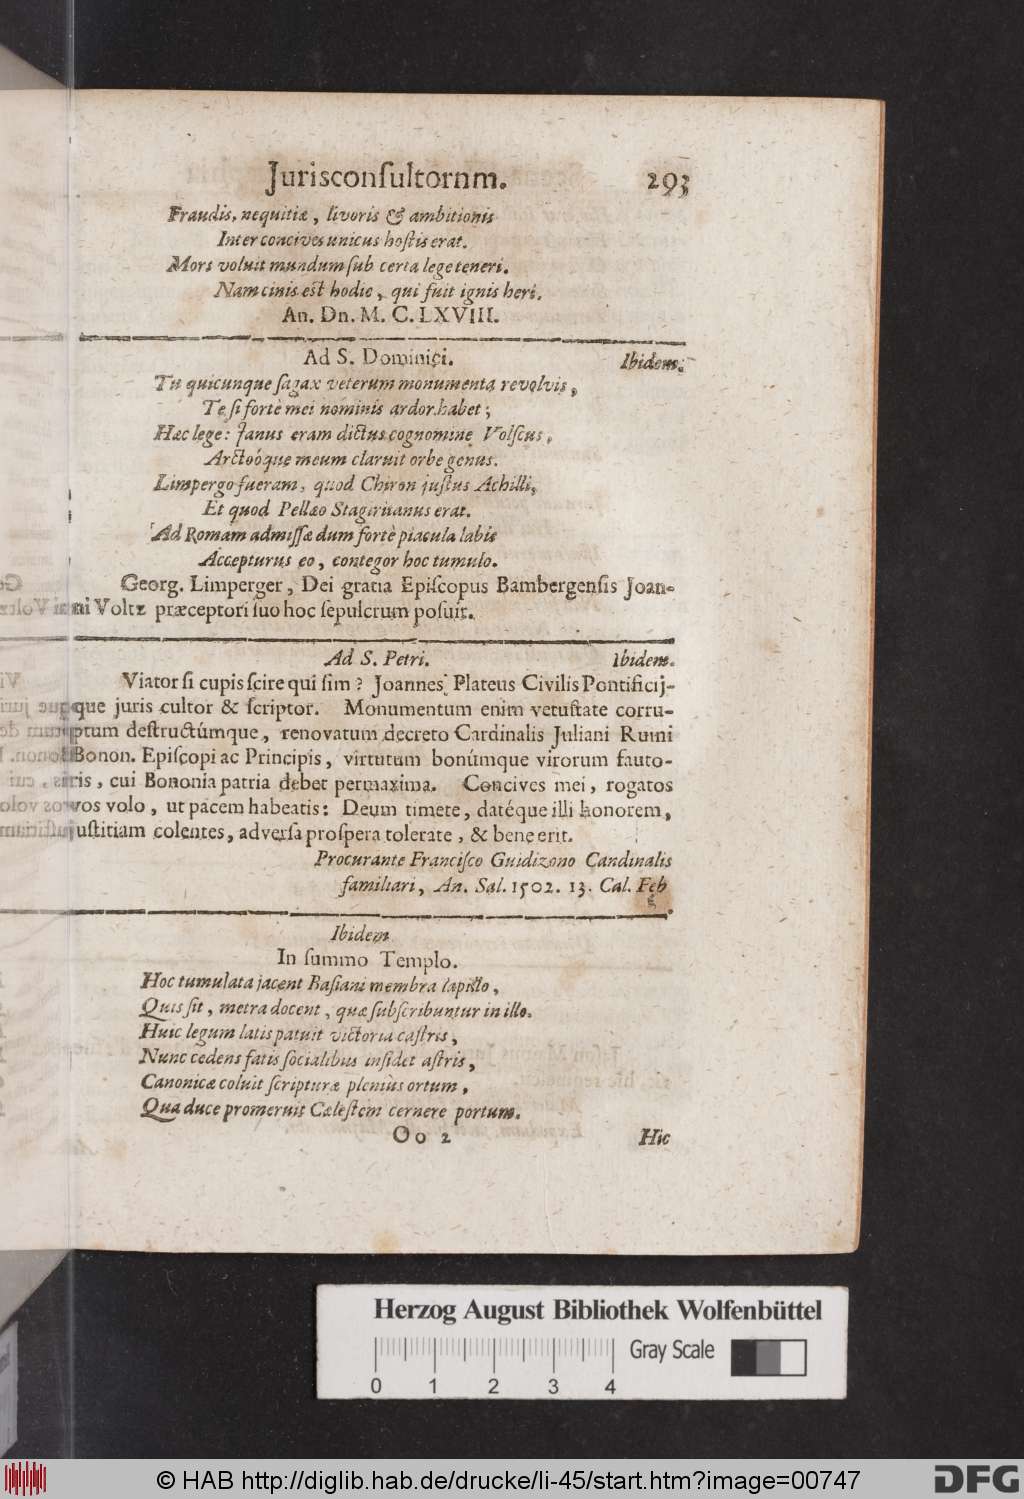 Jurisconſultornm. 293
Fraudis, nequitiæ, livoris & ambitionis
Inter concives unicus hoſtis erat.
Mors voluit mundum ſub certa lege teneri.
Nam cinis eſt hodie, qui fuit ignis heri.
An. Dn. M. C. LXVIII.
Ad S. Dominici. Ibidem.
Tu quicunque ſagax veterum monumenta revolvis,
Te ſi fortè mei nominis ardor habet;
Hæc lege: Janus eram dictus cognomine Volſcus,
Arctoóque meum claruit orbe genus.
Limpergo fueram, quod Chiron juſtus Achilli,
Et quod Pellæo Stagiritanus erat.
Ad Romam admiſſæ dum fortè piacula labis
Accepturus eo, contegor hoc tumulo.
Georg. Limperger, Dei gratia Epiſcopus Bambergenſis Joan-
ni Voltz præceptori ſuo hoc ſepulcrum poſuit.
Ad S. Petri. Ibidem.
Viator ſi cupis ſcire qui ſim? Joannes Plateus Civilis Pontificij-
que juris cultor & ſcriptor. Monumentum enim vetuſtate corru-
ptum deſtructúmque, renovatum decreto Cardinalis Juliani Rumi
Bonon. Epiſcopi ac Principis, virtutum bonúmque virorum fauto-
ris, cui Bononia patria debet permaxima. Concives mei, rogatos
vos volo, ut pacem habeatis: Deum timete, datéque illi honorem,
juſtitiam colentes, adverſa proſpera tolerate, & bene erit.
Procurante Franciſco Guidizono Candinalis
familiari, An. Sal. 1502. 13. Cal. Feb
Ibidem
In ſummo Templo.
Hoc tumulata jacent Baſiani membra lapillo,
Quis ſit, metra docent, quæ ſubſcribuntur in illo.
Huic legum latis patuit victoria caſtris,
Nunc cedens fatis ſocialibus inſidet aſtris,
Canonicæ coluit ſcripturæ pleniùs ortum,
Qua duce promeruit Cæleſtem cernere portum.
Oo 2 Hic
Herzog August Bibliothek Wolfenbüttel
Gray Scale
0 1 2 3 4
© HAB http://diglib.hab.de/drucke/li-45/start.htm?image=00747
DFG